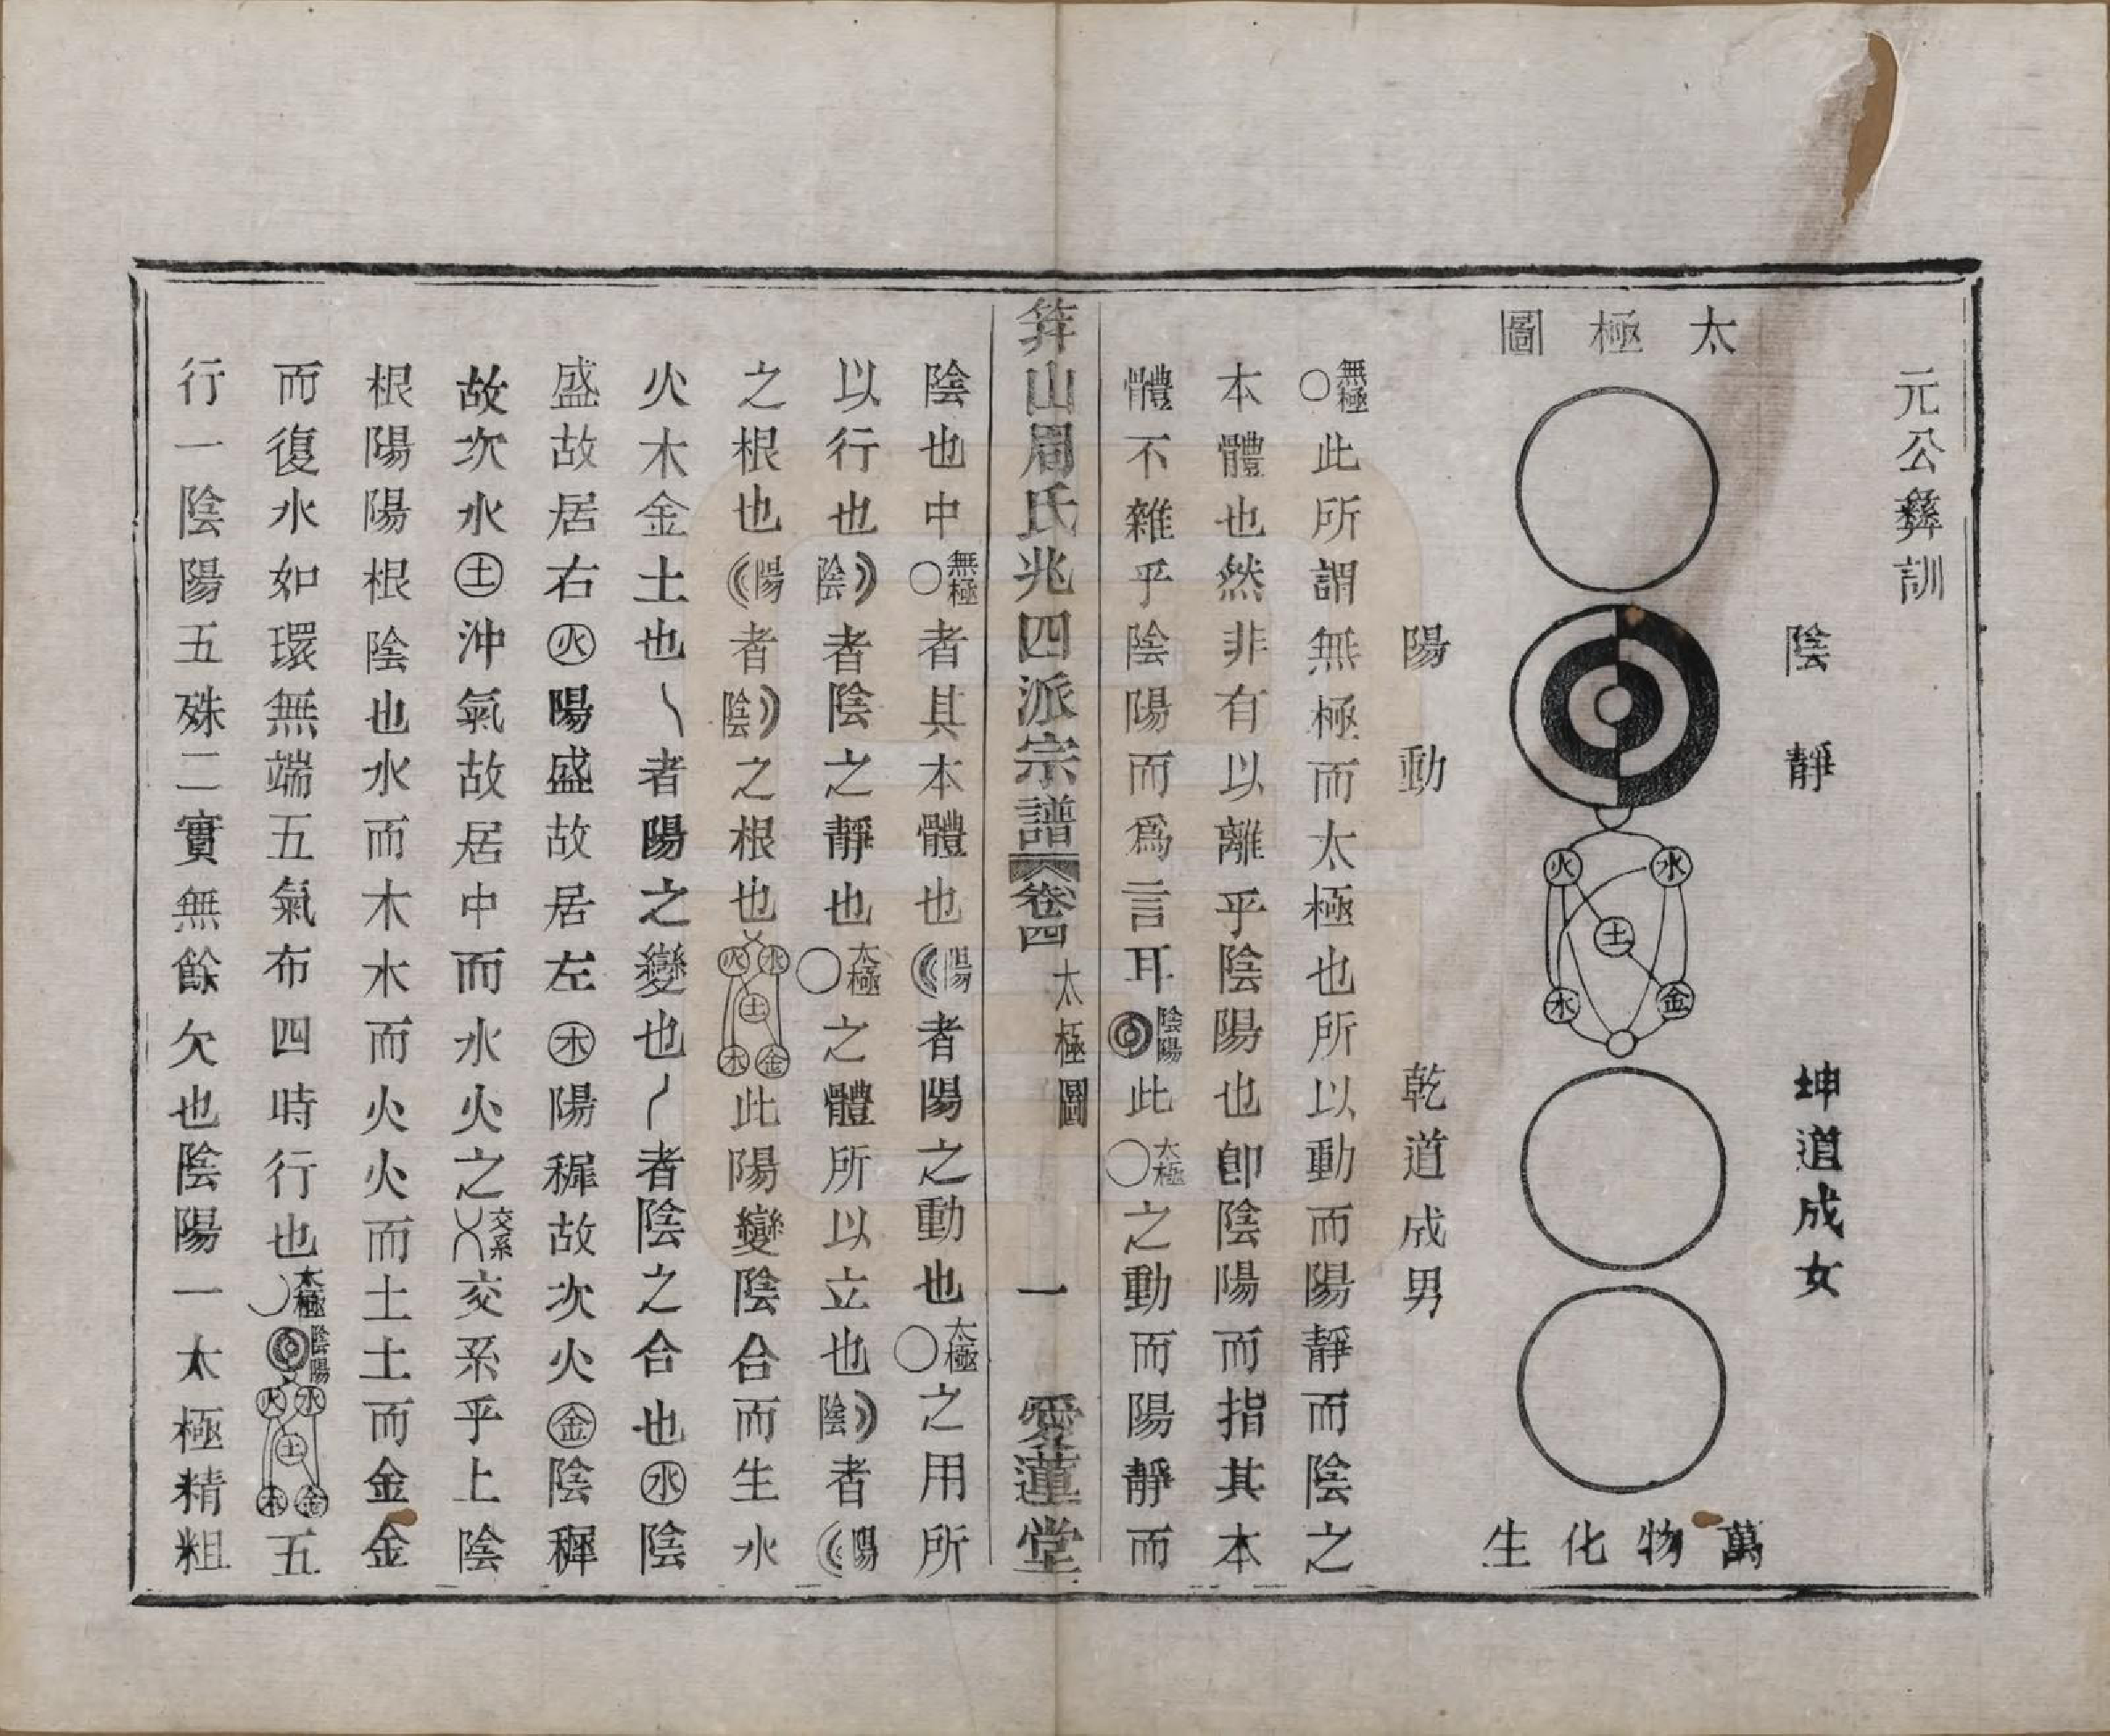 元公彝訓
太極圖
陰靜
坤道成女
火
水
土
木
金
萬物化生
陽動
乾道成男
○無極此所謂無極而太極也所以動而陽靜而陰之
本體也然非有以離乎陰陽也卽陰陽而指其本
體不雜乎陰陽而爲言耳陰陽此○太極之動而陽靜而
筓山周氏兆四派宗譜 卷四 太極圖 一 愛蓮堂
陰也中○無極者其本體也陽者陽之動也○太極之用所
以行也陰者陰之靜也○太極之體所以立也陰者陽
之根也陽者陰之根也火水土木金此陽變陰合而生水
火木金土也㇏者陽之變也㇓者陰之合也㊌陰
盛故居右㊋陽盛故居左㊍陽穉故次火㊎陰穉
故次水㊏沖氣故居中而水火之交系交系乎上陰
根陽陽根陰也水而木木而火火而土土而金金
而復水如環無端五氣布四時行也太極陰陽火水土木金五
行一陰陽五殊二實無餘欠也陰陽一太極精粗